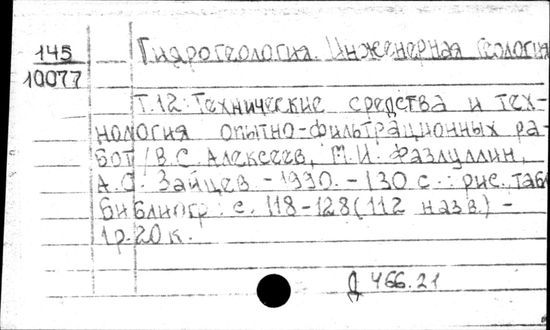 145
10077
Гидрогеология. Инженерная геология
Т.12: Технические средства и тех-
нология опытно-фильтрационных ра-
бот / В.С. Алексеев, М.И. Фазлуллин,
А.С. Зайцев - 1990. - 130 с.: рис., табл
Библиогр.: с. 118-128 (112 назв.) -
1р.20к.
Д 466.21